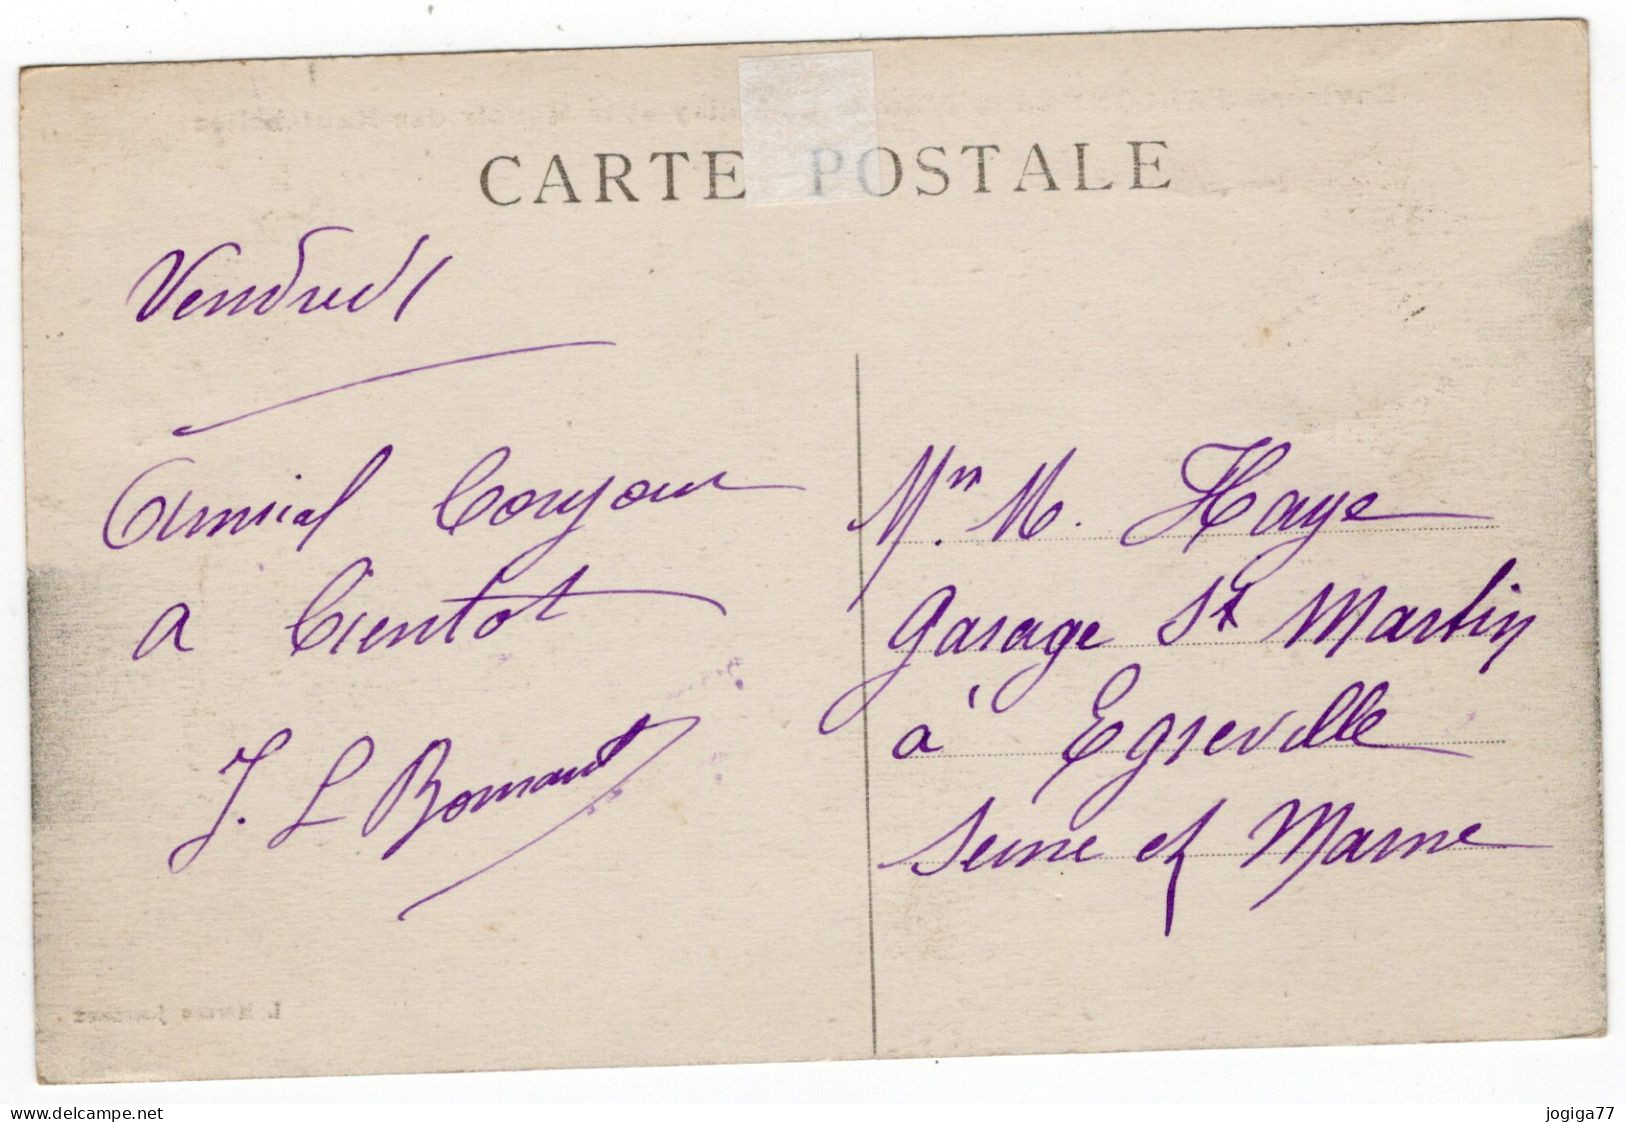 CARTE POSTALE
Vendredi
Amical Bonjour
a Bientot
J. L Bornant
Mr. M. Haye
garage St Martin
à Egreville
Seine et Marne
www.delcampe.net
jogiga77